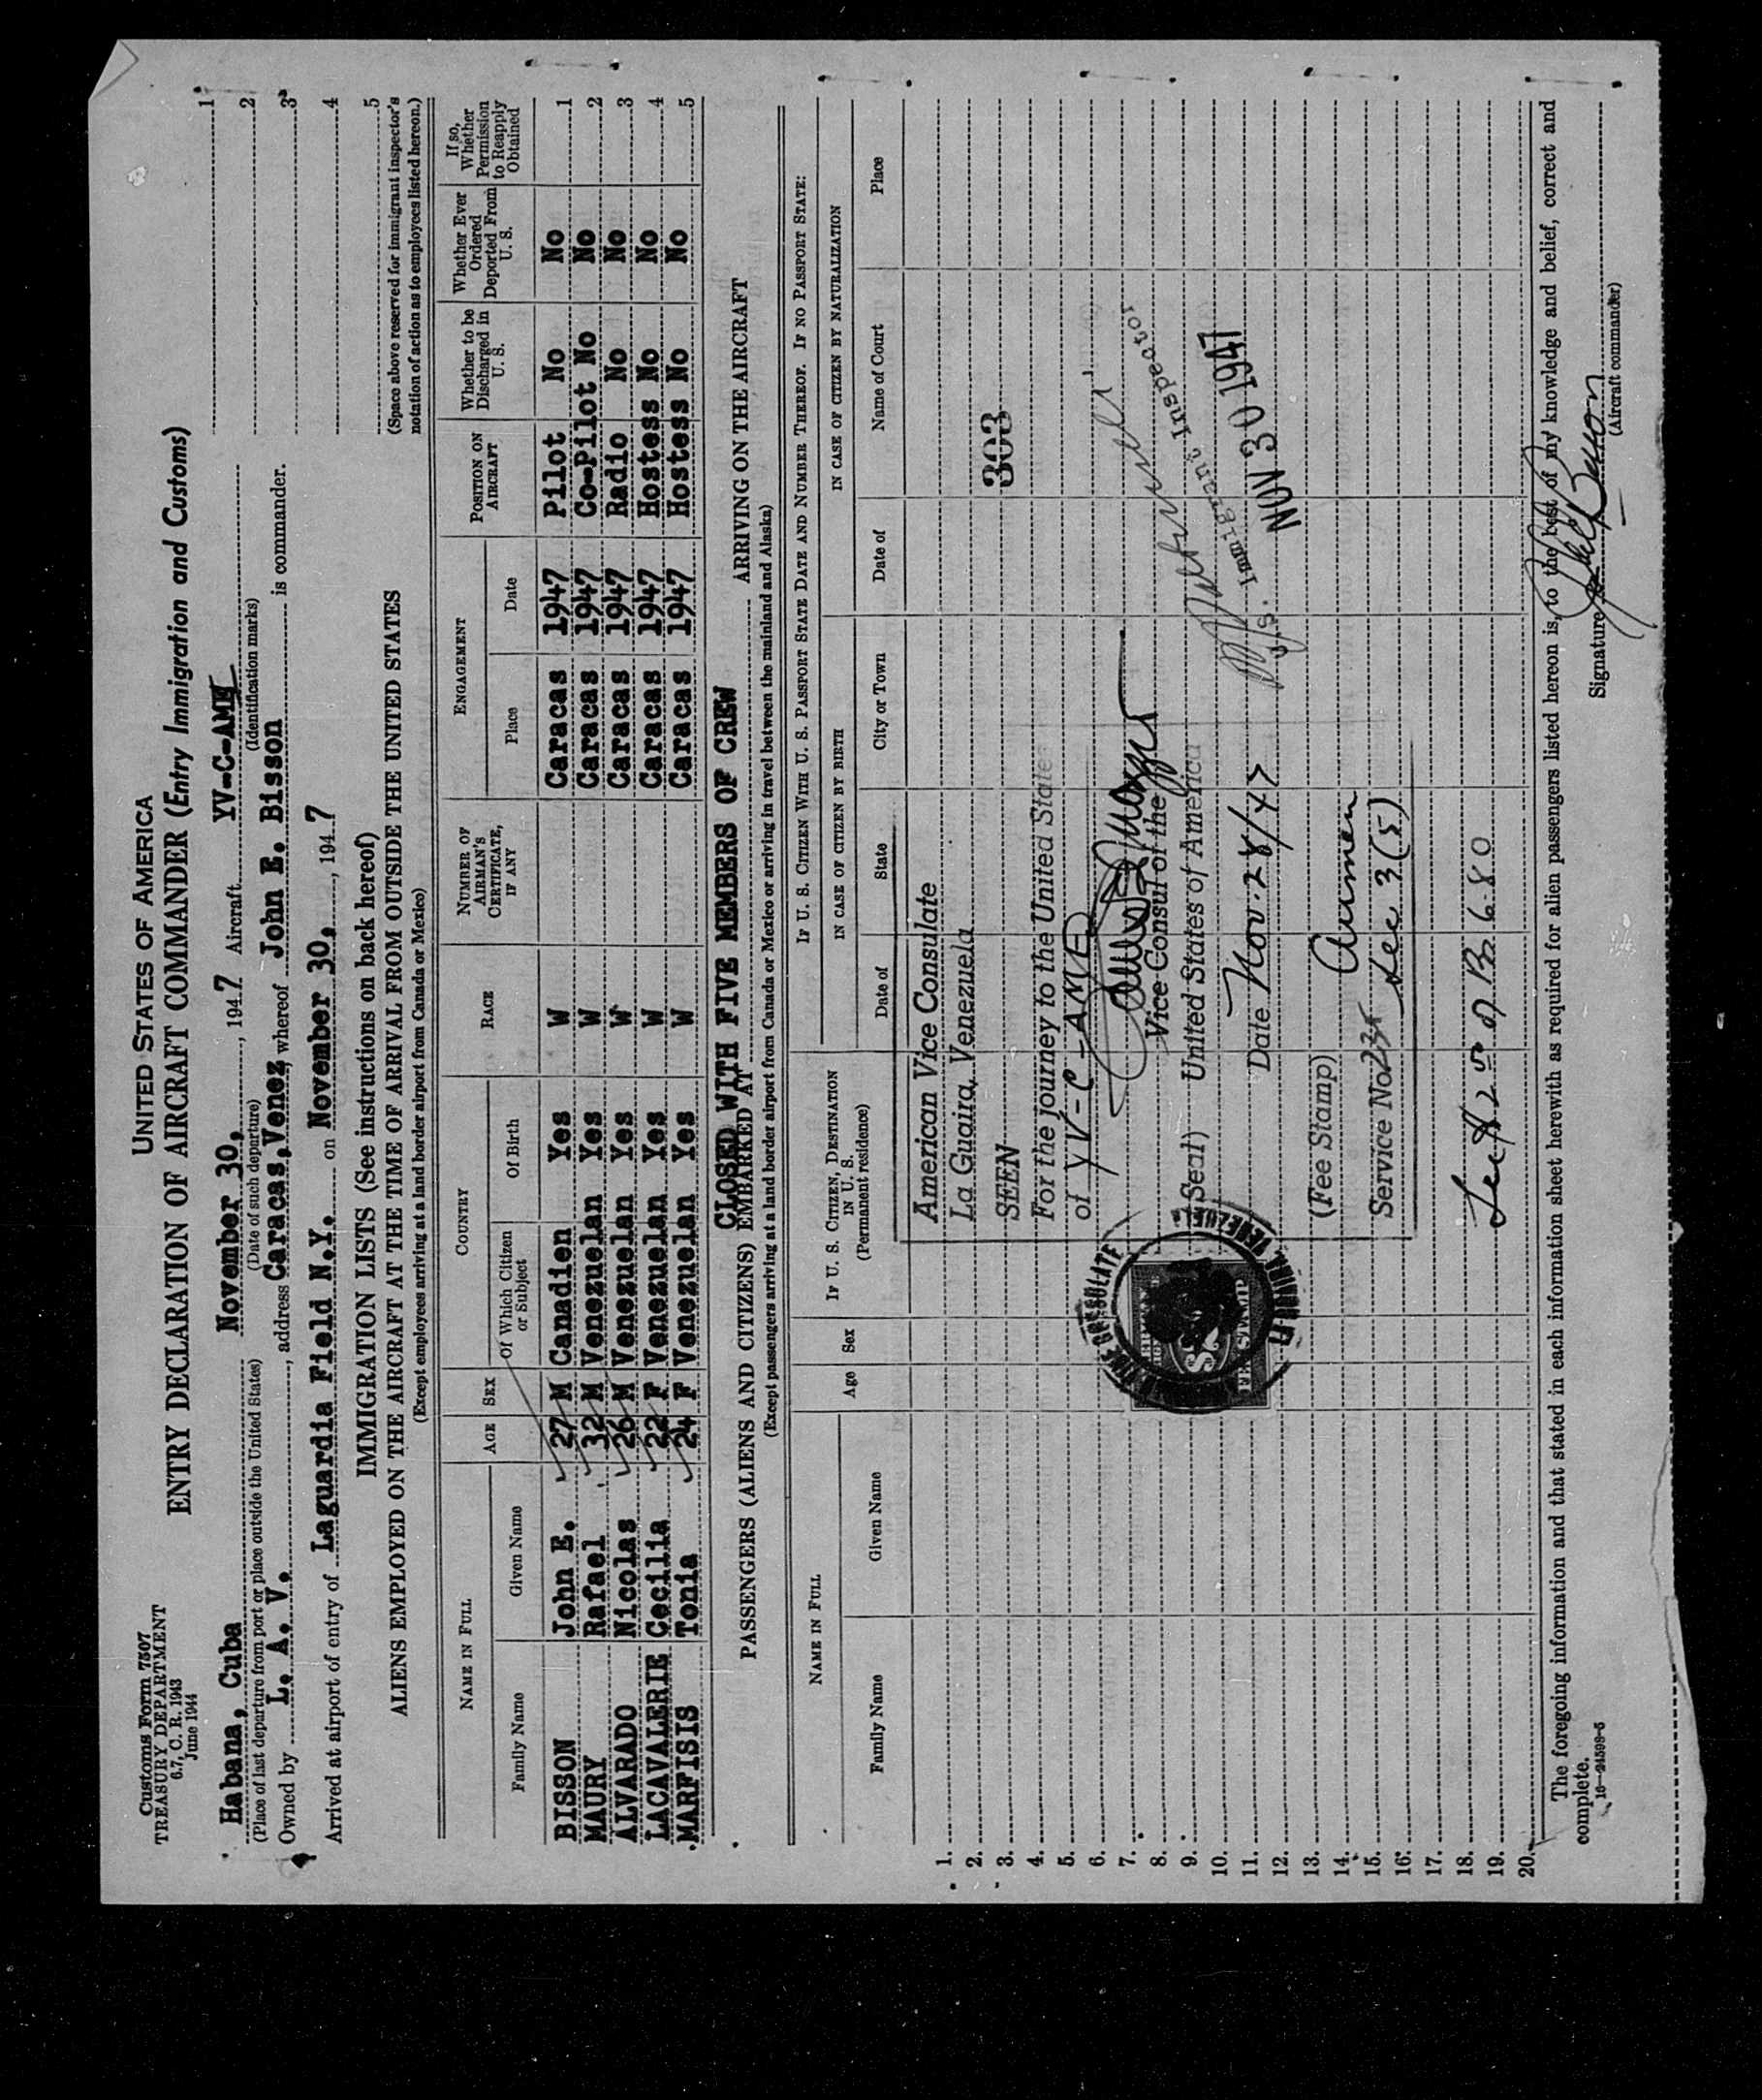 Customs Form 7507
TREASURY DEPARTMENT
6.7, C. R. 1943
June 1944
UNITED STATES OF AMERICA
ENTRY DECLARATION OF AIRCRAFT COMMANDER (Entry Immigration and Customs)
Habana, Cuba November 30, , 1947 Aircraft YV-C-AME
(Place of last departure from port or place outside the United States) (Date of such departure) (Identification marks)
Owned by L. A. V. , address Caracas,Venez, whereof John E. Bisson is commander.
Arrived at airport of entry of Laguardia Field N.Y. on November 30, , 1947
1
2
3
4
5
(Space above reserved for immigrant inspector's
notation of action as to employees listed hereon.)
IMMIGRATION LISTS (See instructions on back hereof)
ALIENS EMPLOYED ON THE AIRCRAFT AT THE TIME OF ARRIVAL FROM OUTSIDE THE UNITED STATES
(Except employees arriving at a land border airport from Canada or Mexico)
NAME IN FULL AGE SEX COUNTRY RACE NUMBER OF AIRMAN'S CERTIFICATE, IF ANY ENGAGEMENT POSITION ON AIRCRAFT Whether to be Discharged in U. S. Whether Ever Ordered Deported From U. S. If so, Whether Permission to Reapply Obtained
Family Name Given Name Of Which Citizen or Subject Of Birth Place Date
BISSON John E. 27 M Canadien Yes W Caracas 1947 Pilot No No 1
MAURY Rafael 32 M Venezuelan Yes W Caracas 1947 Co-Pilot No No 2
ALVARADO Nicolas 26 M Venezuelan Yes W Caracas 1947 Radio No No 3
LACAVALERIE Cecilia 22 F Venezuelan Yes W Caracas 1947 Hostess No No 4
MARFISIS Tonia 24 F Venezuelan Yes W Caracas 1947 Hostess No No 5
CLOSED WITH FIVE MEMBERS OF CREW
PASSENGERS (ALIENS AND CITIZENS) EMBARKED AT ARRIVING ON THE AIRCRAFT
(Except passengers arriving at a land border airport from Canada or Mexico or arriving in travel between the mainland and Alaska)
NAME IN FULL Age Sex IF U. S. CITIZEN, DESTINATION IN U. S. (Permanent residence) IF U. S. CITIZEN WITH U. S. PASSPORT STATE DATE AND NUMBER THEREOF. IF NO PASSPORT STATE:
IN CASE OF CITIZEN BY BIRTH IN CASE OF CITIZEN BY NATURALIZATION
Family Name Given Name Date of State City or Town Date of Name of Court Place
1.
2.
3.
4.
5.
6.
7.
8.
9.
10.
11.
12.
13.
14.
15.
16.
17.
18.
19.
20.
American Vice Consulate
La Guaira, Venezuela
SEEN
303
For the journey to the United States
of YV-C-AME
Vice Consul of the
(Seal) United States of America
Date Nov. 28/47
(Fee Stamp)
Service No 235
Sec 3(5)
U.S. Immigrant Inspector
NOV 30 1947
B 6680
The foregoing information and that stated in each information sheet herewith as required for alien passengers listed hereon is, to the best of my knowledge and belief, correct and
complete.
16—24598-5
Signature
(Aircraft commander)